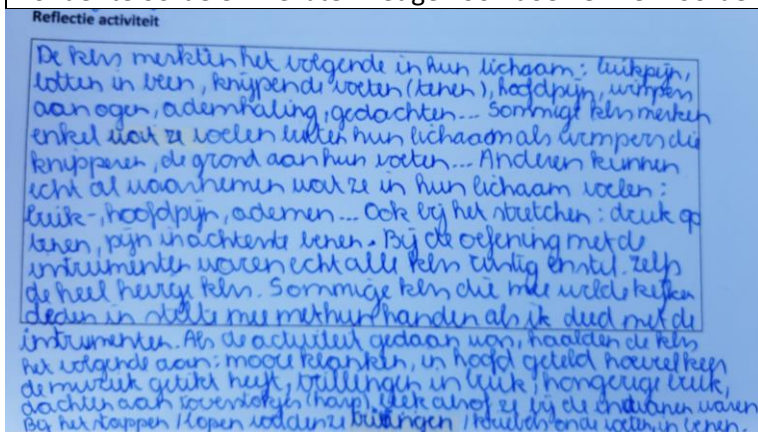 Reflectie activiteit
De kls merkten het volgende in hun lichaam: buikpijn,
botten in been, knijpende voeten (tenen), hoofdpijn, wimpers
aan ogen, ademhaling, gedachten... Sommige kls merken
enkel wat ze voelen buiten hun lichaam als wimpers die
knipperen, de grond aan hun voeten... Anderen kunnen
echt al waarnemen wat ze in hun lichaam voelen:
buik-, hoofdpijn, ademen... Ook bij het stretchen: druk op
tenen, pijn in achterste benen. Bij de oefening met de
instrumenten waren echt alle kls rustig en stil. Zelfs
de heel hevige kls. Sommige kls die mee wilde kijken
deden in stilte mee met hun handen als ik deed met de
instrumenten. Als de activiteit gedaan was, haalden de kls
het volgende aan: mooie klanken, in hoofd geteld hoeveel keer
de muziek getikt heeft, trillingen in buik, hongerige buik,
dachten aan (harp), leek alsof ze bij de indianen waren
Bij het stappen / lopen hadden ze trillingen / onder voeten, in benen.